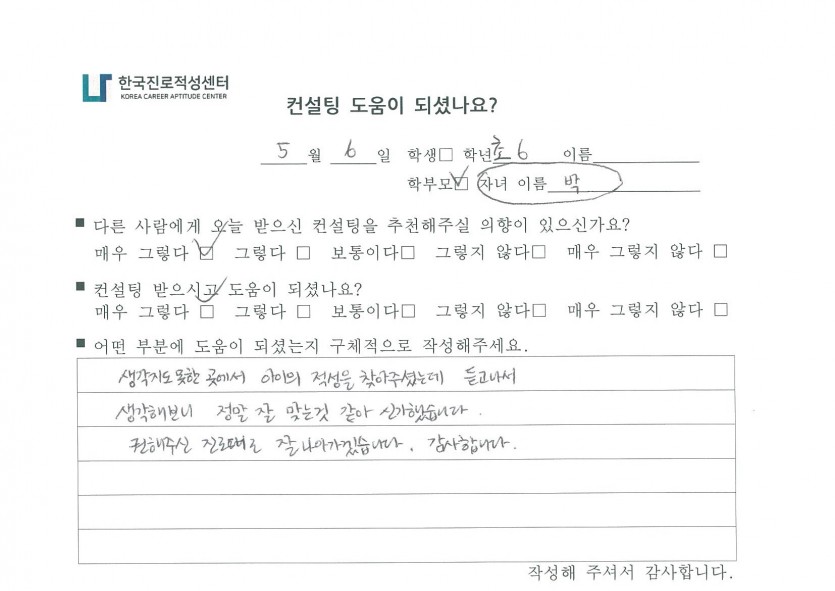 한국진로적성센터
KOREA CAREER APTITUDE CENTER
컨설팅 도움이 되셨나요?
5 월 6 일 학생□ 학년 초6 이름
학부모☑ 자녀 이름 박
■ 다른 사람에게 오늘 받으신 컨설팅을 추천해주실 의향이 있으신가요?
매우 그렇다 ☑ 그렇다 □ 보통이다□ 그렇지 않다□ 매우 그렇지 않다 □
■ 컨설팅 받으시고 도움이 되셨나요?
매우 그렇다 □ 그렇다 □ 보통이다□ 그렇지 않다□ 매우 그렇지 않다 □
■ 어떤 부분에 도움이 되셨는지 구체적으로 작성해주세요.
생각지도 못한 곳에서 아이의 적성을 찾아주셨는데 듣고나서
생각해보니 정말 잘 맞는것 같아 신기했습니다.
권해주신 진로대로 잘 나아가겠습니다. 감사합니다.
작성해 주셔서 감사합니다.